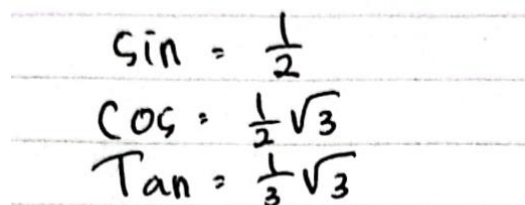 sin = 1/2
cos = 1/2 √3
Tan = 1/3 √3